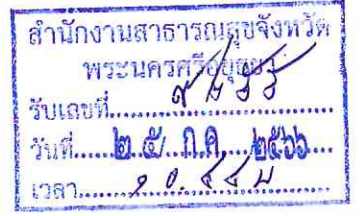 สำนักงานสาธารณสุขจังหวัด
พระนครศรีอยุธยา
รับเลขที่
วันที่ ๒๕ ก.ค. ๒๕๖๖
เวลา